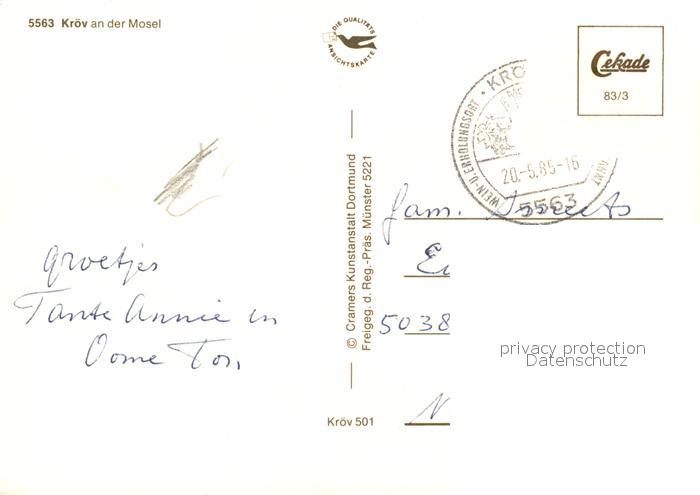 5563 Kröv an der Mosel
DIE QUALITÄTS
ANSICHTSKARTE
Cekade
83/3
WEIN-U. ERHOLUNGSORT · KRÖ
20.-5.85-16
5563
© Cramers Kunstanstalt Dortmund
Freigeg. d. Reg.-Präs. Münster 5221
Kröv 501
groetjes
Tante Annie en
Oome Ton,
fam.
5038
N
privacy protection
Datenschutz